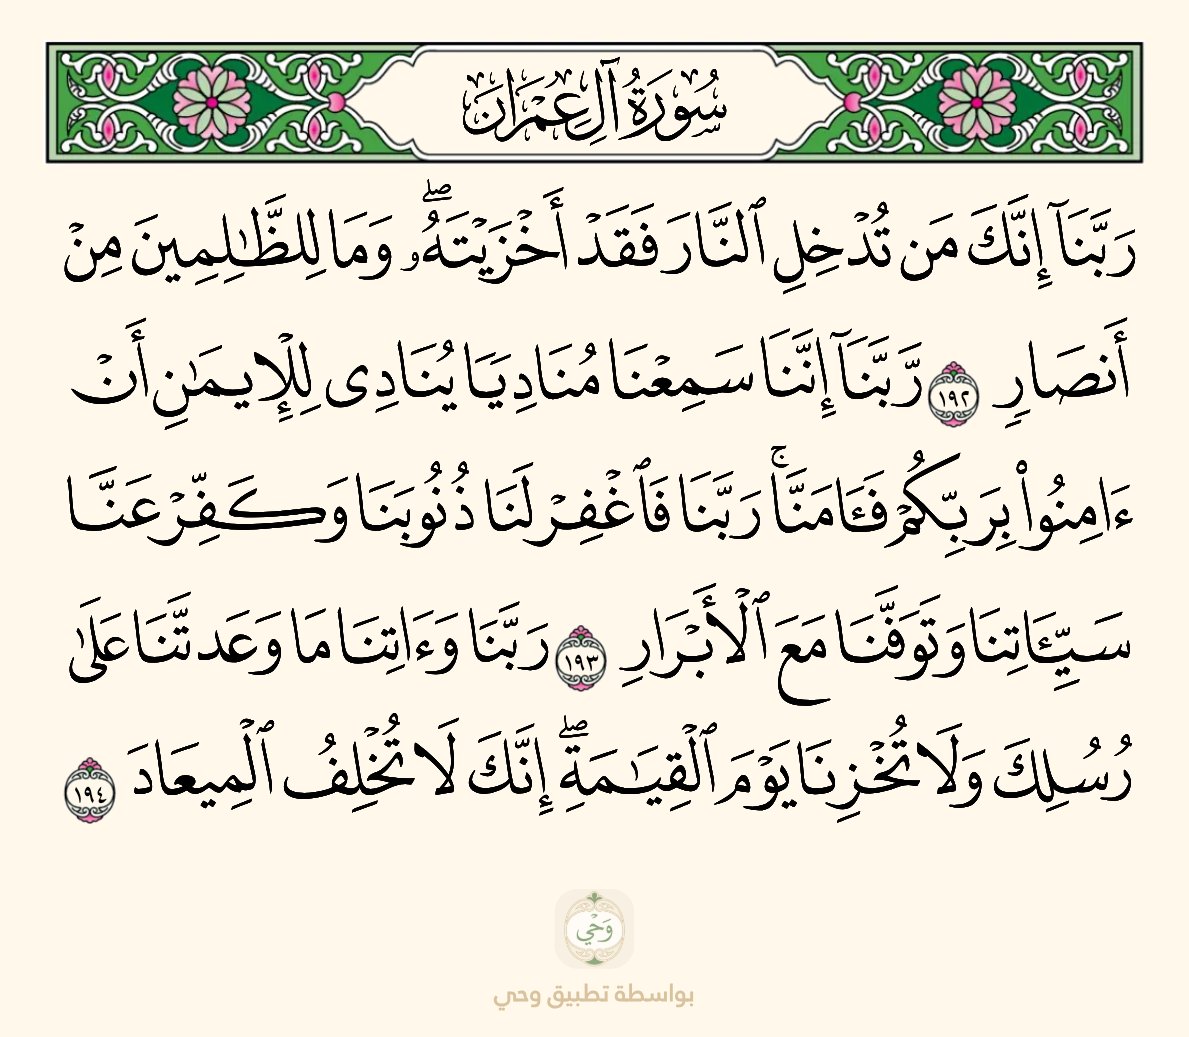 سُورَةُ آلِ عِمْرَانَ
رَبَّنَآ إِنَّكَ مَن تُدْخِلِ ٱلنَّارَ فَقَدْ أَخْزَيْتَهُۥۖ وَمَا لِلظَّٰلِمِينَ مِنْ
أَنصَارٍ ١٩٢ رَّبَّنَآ إِنَّنَا سَمِعْنَا مُنَادِيًا يُنَادِى لِلْإِيمَٰنِ أَنْ
ءَامِنُوا۟ بِرَبِّكُمْ فَـَٔامَنَّاۚ رَبَّنَا فَٱغْفِرْ لَنَا ذُنُوبَنَا وَكَفِّرْ عَنَّا
سَيِّـَٔاتِنَا وَتَوَفَّنَا مَعَ ٱلْأَبْرَارِ ١٩٣ رَبَّنَا وَءَاتِنَا مَا وَعَدتَّنَا عَلَىٰ
رُسُلِكَ وَلَا تُخْزِنَا يَوْمَ ٱلْقِيَٰمَةِۖ إِنَّكَ لَا تُخْلِفُ ٱلْمِيعَادَ ١٩٤
وَحْي
بواسطة تطبيق وحي